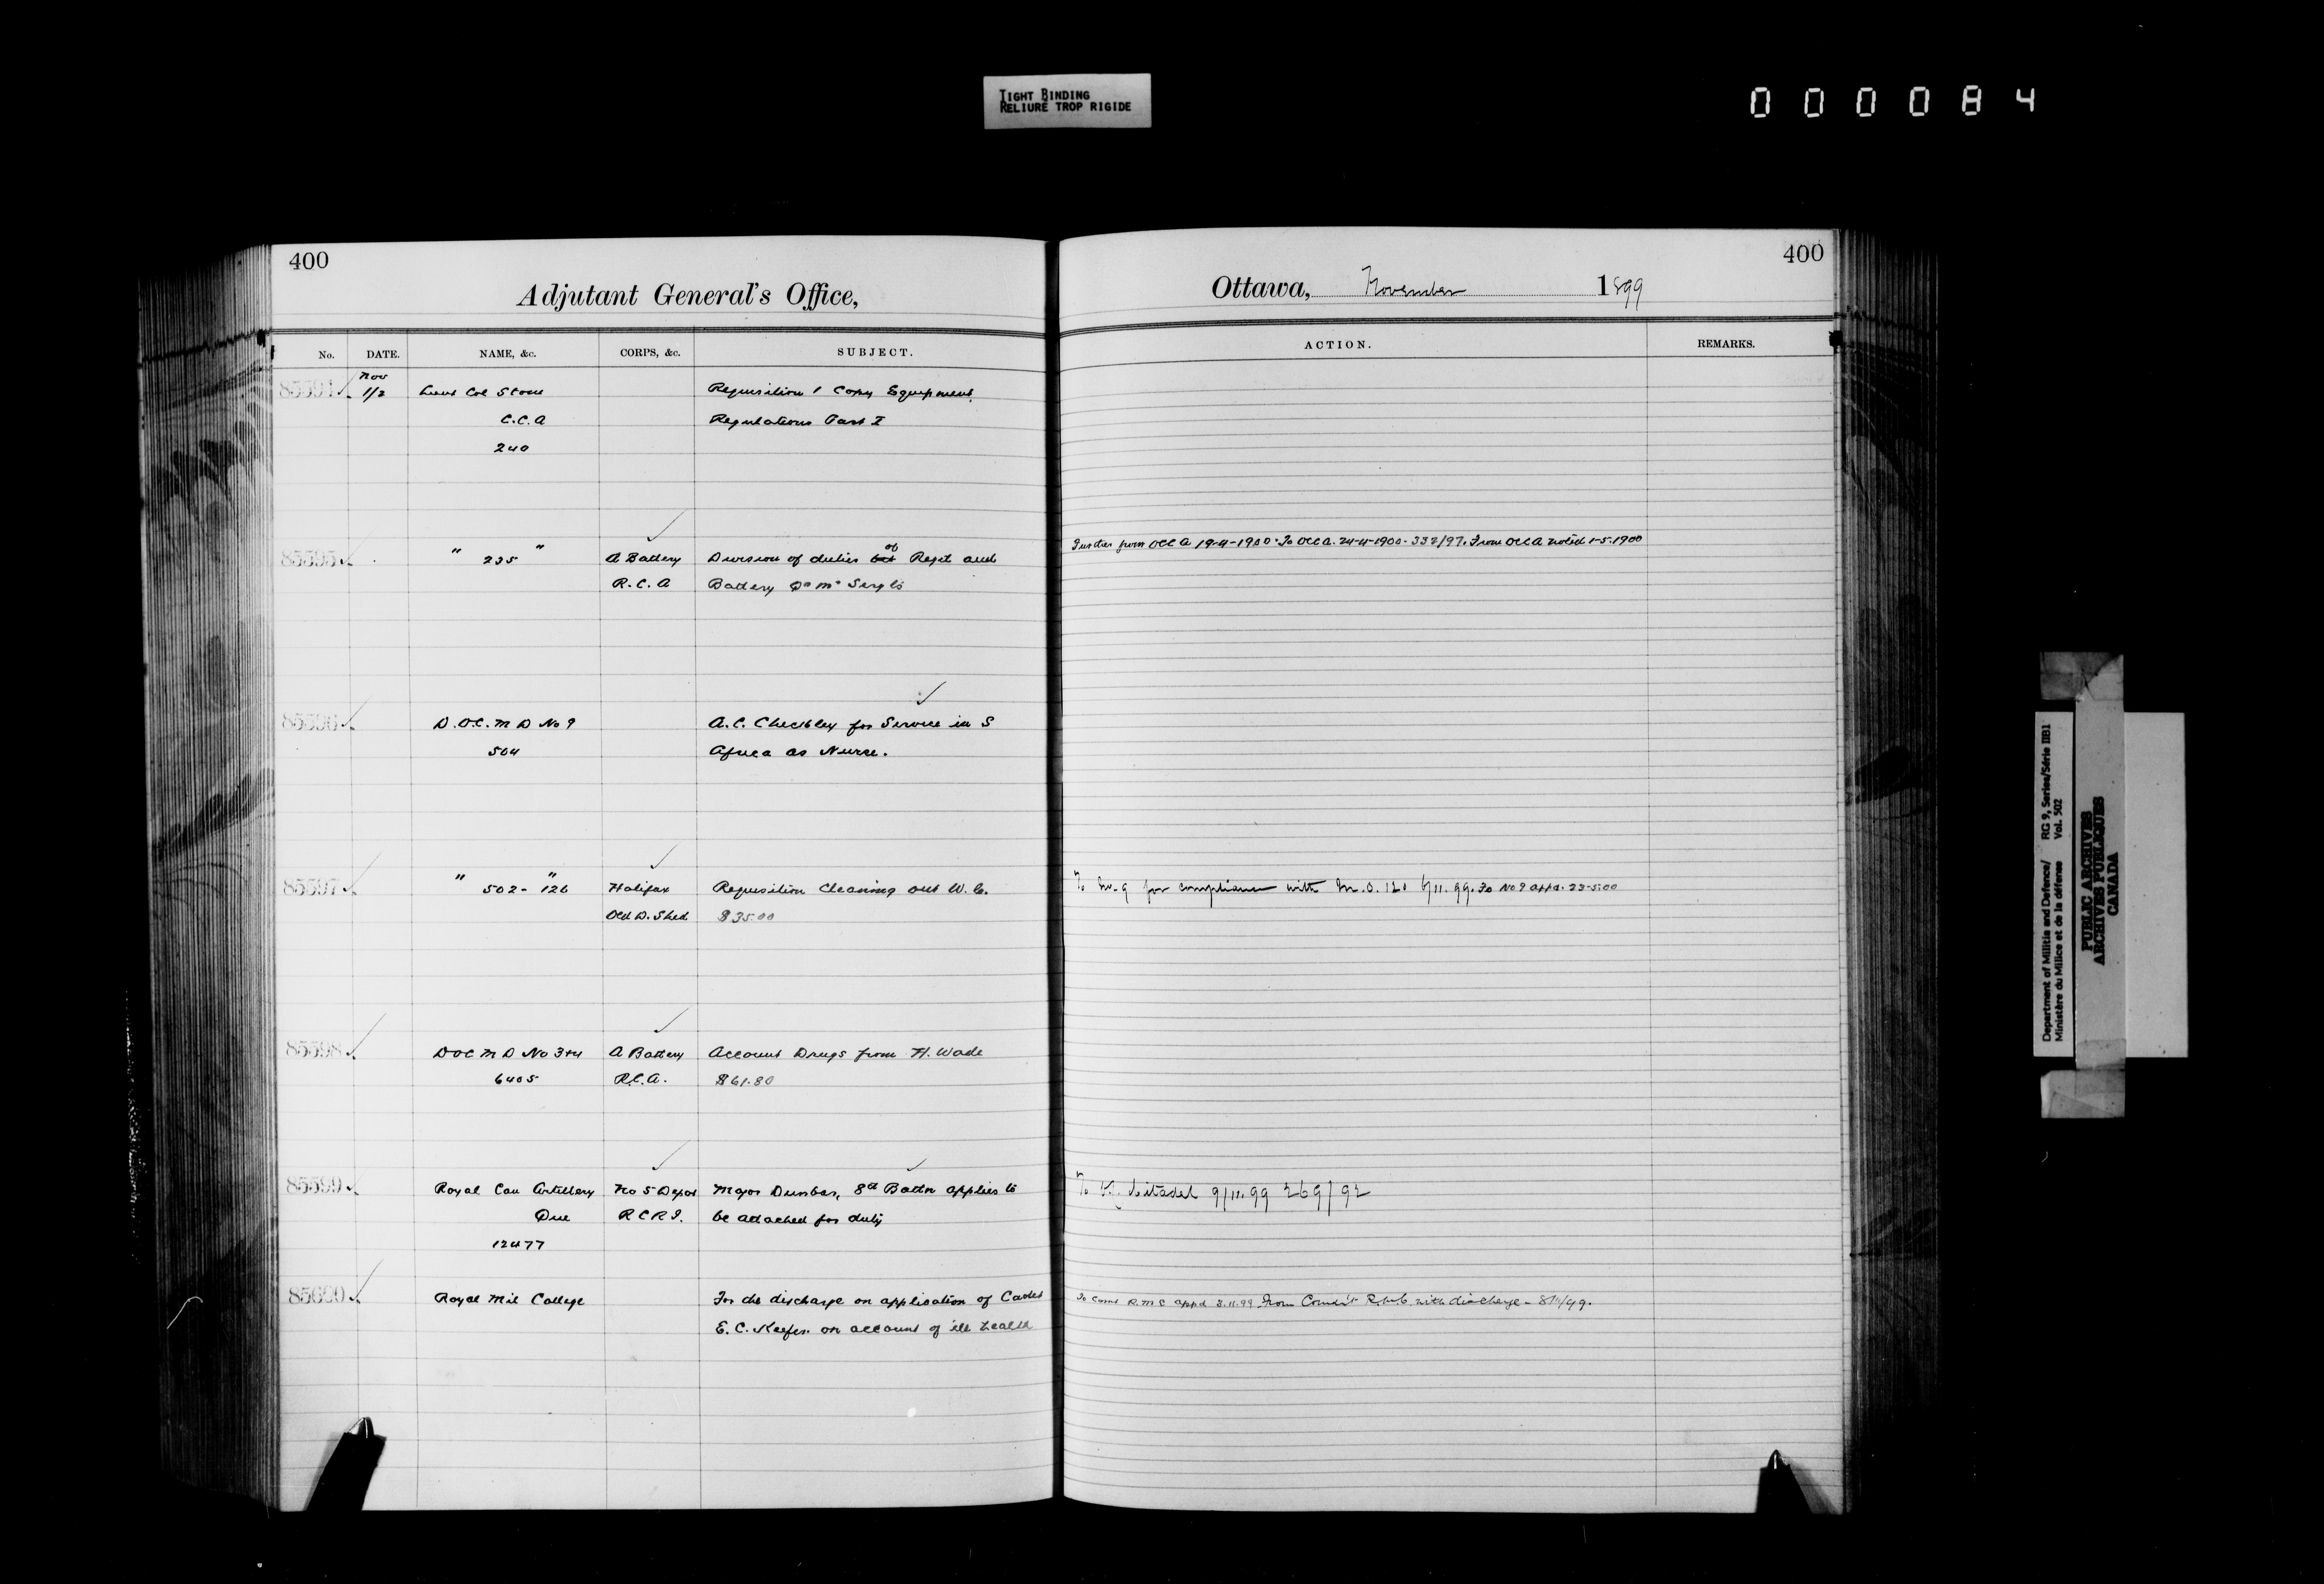 TIGHT BINDING
RELIURE TROP RIGIDE
0 0 0 0 8 4
400
Adjutant General's Office,
No. DATE. NAME, &c. CORPS, &c. SUBJECT.
Nov
85594 1/2 Lieut Col Stone Requisition 1 Copy Equipment
C.C.A Regulations Part I
240
85595 " 235 " A Battery Division of duties of Regtl and
R.C.A Battery Qr Mr Sergts
85596 D.O.C. M D No 9 A.C. Checkley for Service in S
504 Africa as Nurse.
85597 " 502 - " 126 Halifax Requisition Cleaning out W.C.
Old D. Shed $35.00
85598 D O C M D No 3+4 A Battery Account Drugs from H. Wade
6405 R.C.A. $61.80
85599 Royal Can Artillery No 5 Depot Major Dunbar, 8th Battn applies to
Que R C R I. be attached for duty
12477
85600 Royal Mil College For the discharge on application of Cadet
E. C. Keefer on account of ill health
400
Ottawa, November 1899
ACTION. REMARKS.
Further from OCC A 19-4-1900. To OCC A. 24-4-1900. 332/97. From OCC A noted 1-5-1900
To No. 9 for compliance with M.O. 120 6/11.99. To No 9 appd. 23-5.00
To Citadel 9/11.99 269/92
To Comt R.M.C appd 3.11.99 From Comd't R.M.C with discharge - 8/11/99.
Department of Militia and Defence/ RG 9, Series/Série IIB1
Ministère du Milice et de la défense Vol. 502
PUBLIC ARCHIVES
ARCHIVES PUBLIQUES
CANADA